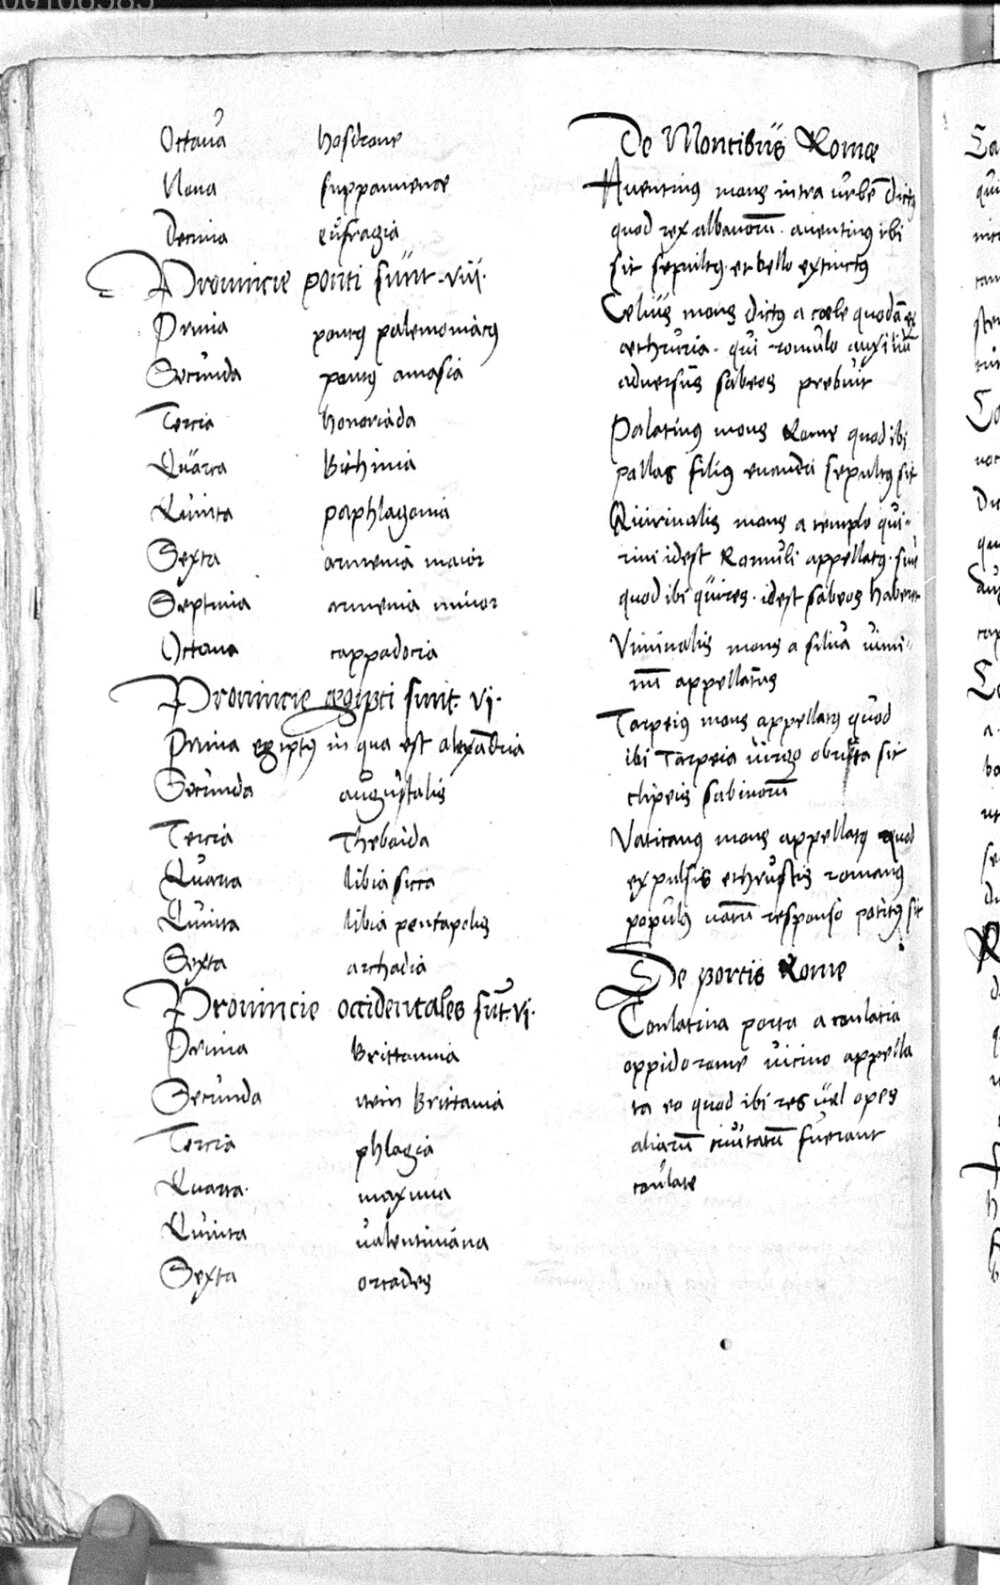 Octaua hosdrone
Nona suppanienae
Decima eufragia
Prouincie ponti sunt .vii.
Prima pontus palemoniacus
Secunda pontus amasia
Tercia honoriada
Quarta Bithinia
Quinta paphlagonia
Sexta armenia maior
Septima armenia minor
Octaua cappadocia
Prouincie ægipti sunt. vi.
Prima egiptus in qua est alexādria
Secunda augustalis
Tercia Thebaida
Quarta libia sicca
Quinta libia pentapolis
Sexta archadia
Prouincie occidentales sūt. vi.
Prima Brittannia
Secunda item Brittania
Tercia phlagia
Quarta. maxima
Quinta ualentiniana
Sexta orcades
De Montibus Romæ
Auentinus mons intra urbē dictus
quod rex albanorū. auentinus ibi
sit sepultus. et bello extinctus
Celius mons dictus a cœle quodā ex
æthruria. qui romulo auxiliū
aduersus sabeos prebuit
Palatinus mons Rome quod ibi
pallas filius euandri sepultus sit
Quirinalis mons a templo qui-
rini idest Romuli appellatus. siue
quod ibi quires. idest sabeos haberet
Viminalis mons a silua uimi-
nū appellatus
Tarpeius mons appellatus quod
ibi Tarpeia uirgo obruta sit
clipeis sabinorū
Vaticanus mons appellatus quod
expulsis ethruscis romanus
populus uatū responso potitus sit
De portis Rome
Conlatina porta a conlatia
oppido rome uicino appella
ta eo quod ibi res uel opes
aliarū ciuitatū fuerant
conlate